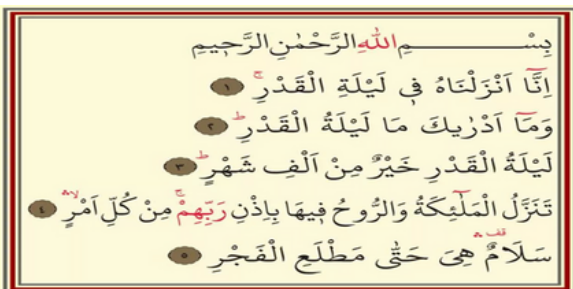 بِسْمِ اللهِ الرَّحْمٰنِ الرَّحٖيمِ
اِنَّٓا اَنْزَلْنَاهُ فٖى لَيْلَةِ الْقَدْرِۚ ١
وَمَٓا اَدْرٰيكَ مَا لَيْلَةُ الْقَدْرِؕ ٢
لَيْلَةُ الْقَدْرِ خَيْرٌ مِنْ اَلْفِ شَهْرٍؕ ٣
تَنَزَّلُ الْمَلٰٓئِكَةُ وَالرُّوحُ فٖيهَا بِاِذْنِ رَبِّهِمْۚ مِنْ كُلِّ اَمْرٍۙۛ ٤
سَلَامٌ۠ۛ هِىَ حَتّٰى مَطْلَعِ الْفَجْرِ ٥